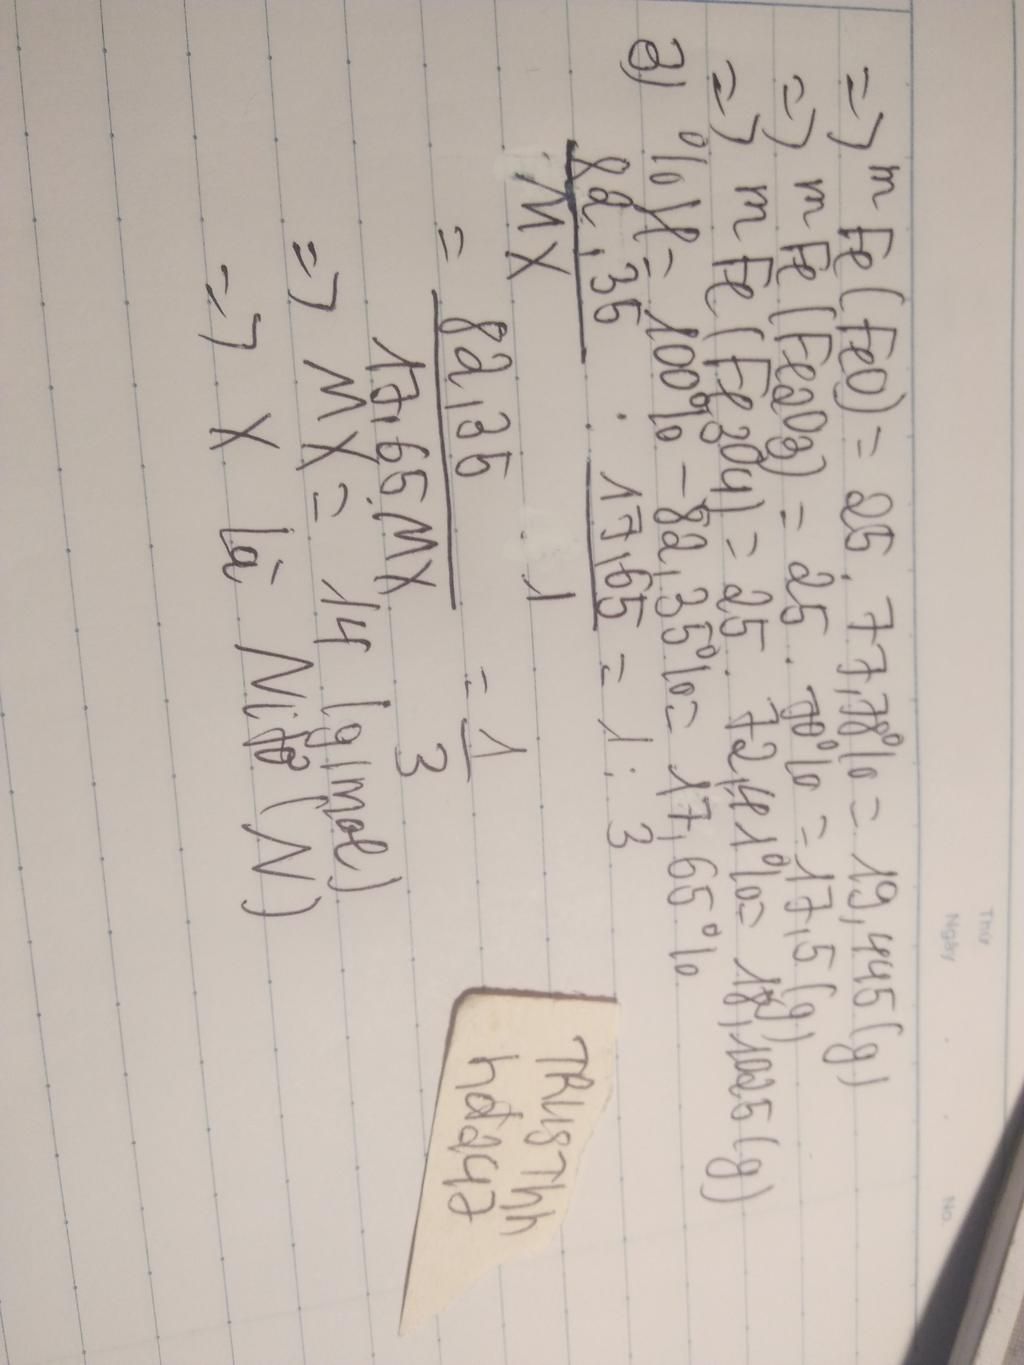 Thứ
Ngày
No.
=> m Fe (FeO) = 25 . 77,78% = 19,445 (g)
=> m Fe (Fe2O3) = 25 . 70% = 17,5 (g)
=> m Fe (Fe3O4) = 25 . 72,41% = 18,1025 (g)
3) % H = 100% - 82,35% = 17,65%
82,35 : 17,65 = 1 : 3
MX 1
= 82,35 = 1
17,65.MX 3
=> MX = 14 (g/mol)
=> X là Nitơ (N)
TRUSThh
hd247